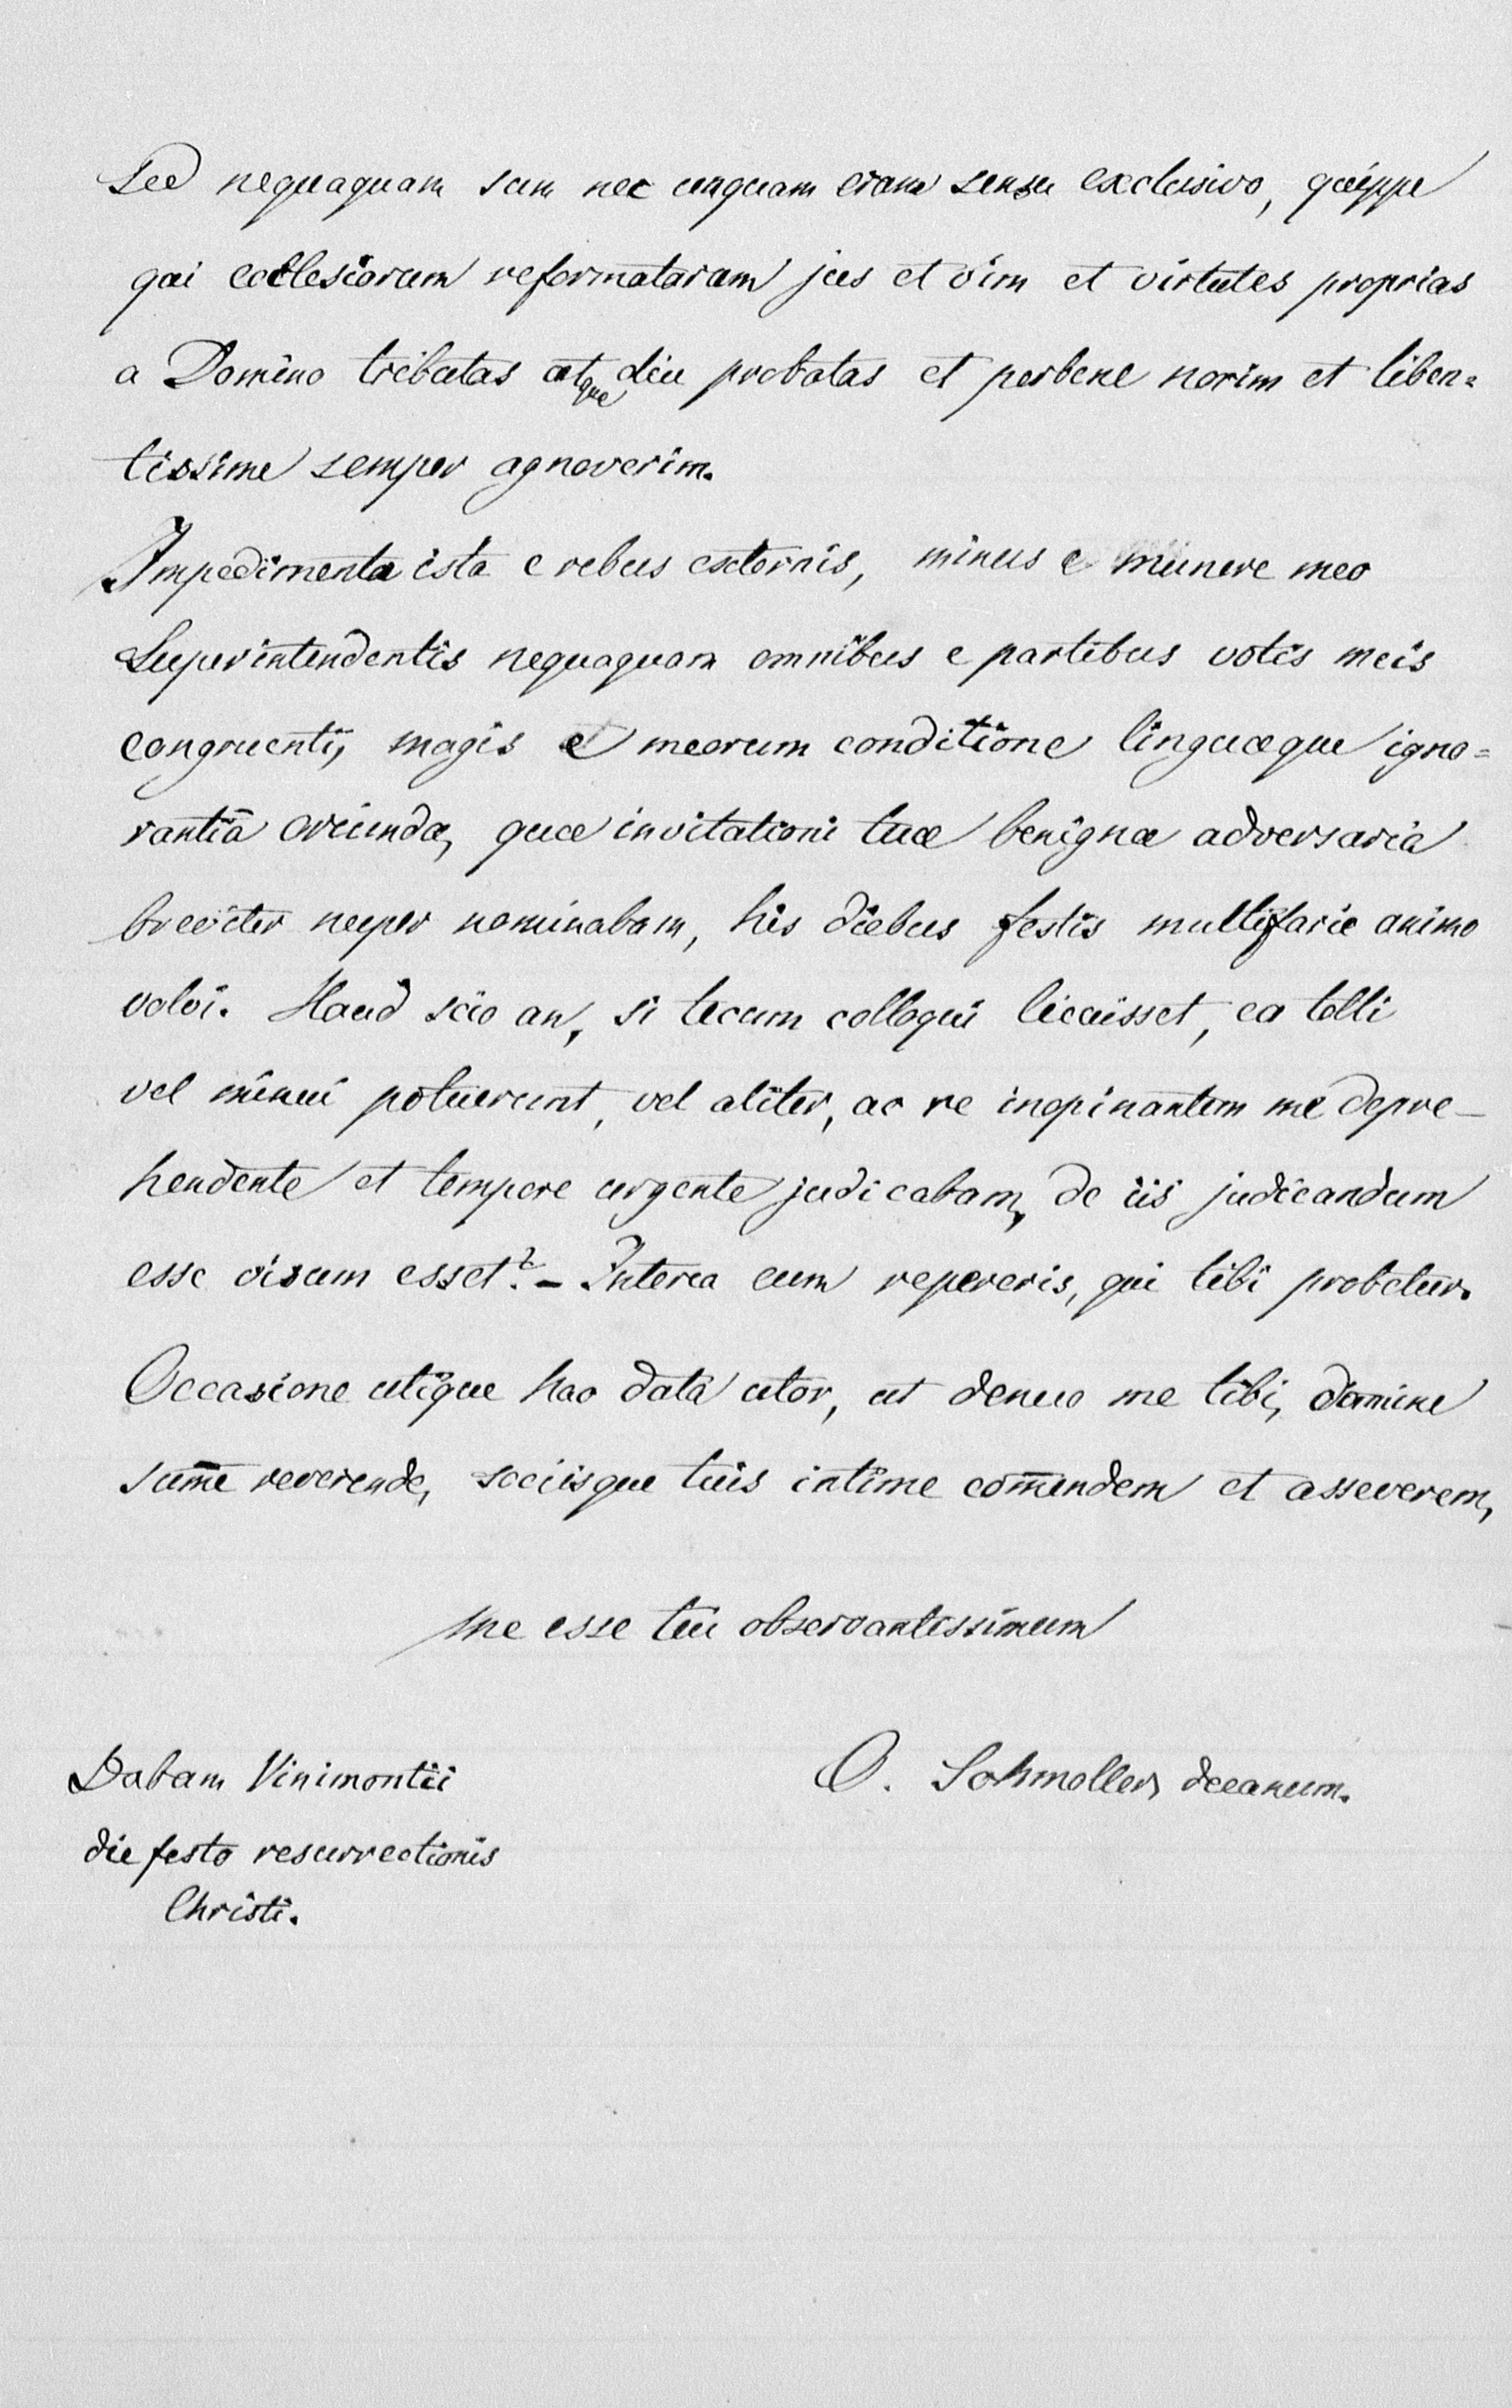 Sed nequaquam sum nec unquam eram sensu exclusivo, quippe
qui ecclesiarum reformatarum jus et vim et virtutes proprias
a Domino tributas atque diu probatas et perbene norim et liben=
tissime semper agnoverim.
Impedimenta ista e rebus externis, minus e munere meo
Superintendentis nequaquam omnibus e partibus votis meis
congruenti, magis e meorum conditione linguæque igno=
rantiâ oriunda, quæ invitationi tuæ benignæ adversaria
breviter nuper nominabam, his diebus festis multifarie animo
volvi. Haud scio an, si tecum colloqui licuisset, ea tolli
vel minui potuerint, vel aliter, ac re inopinantem me depre-
hendente et tempore urgente judicabam, de iis judicandum
esse visum esset? - Interea eum repereris, qui tibi probetur.
Occasione utique hac datâ utor, ut denuo me tibi, domine
sum̄e reverende, sociisque tuis intime com̄endem et asseverem,
me esse tui observantissimum
O. Schmoller, decanum.
Dabam Vinimontii
die festo resurrectionis
Christi.